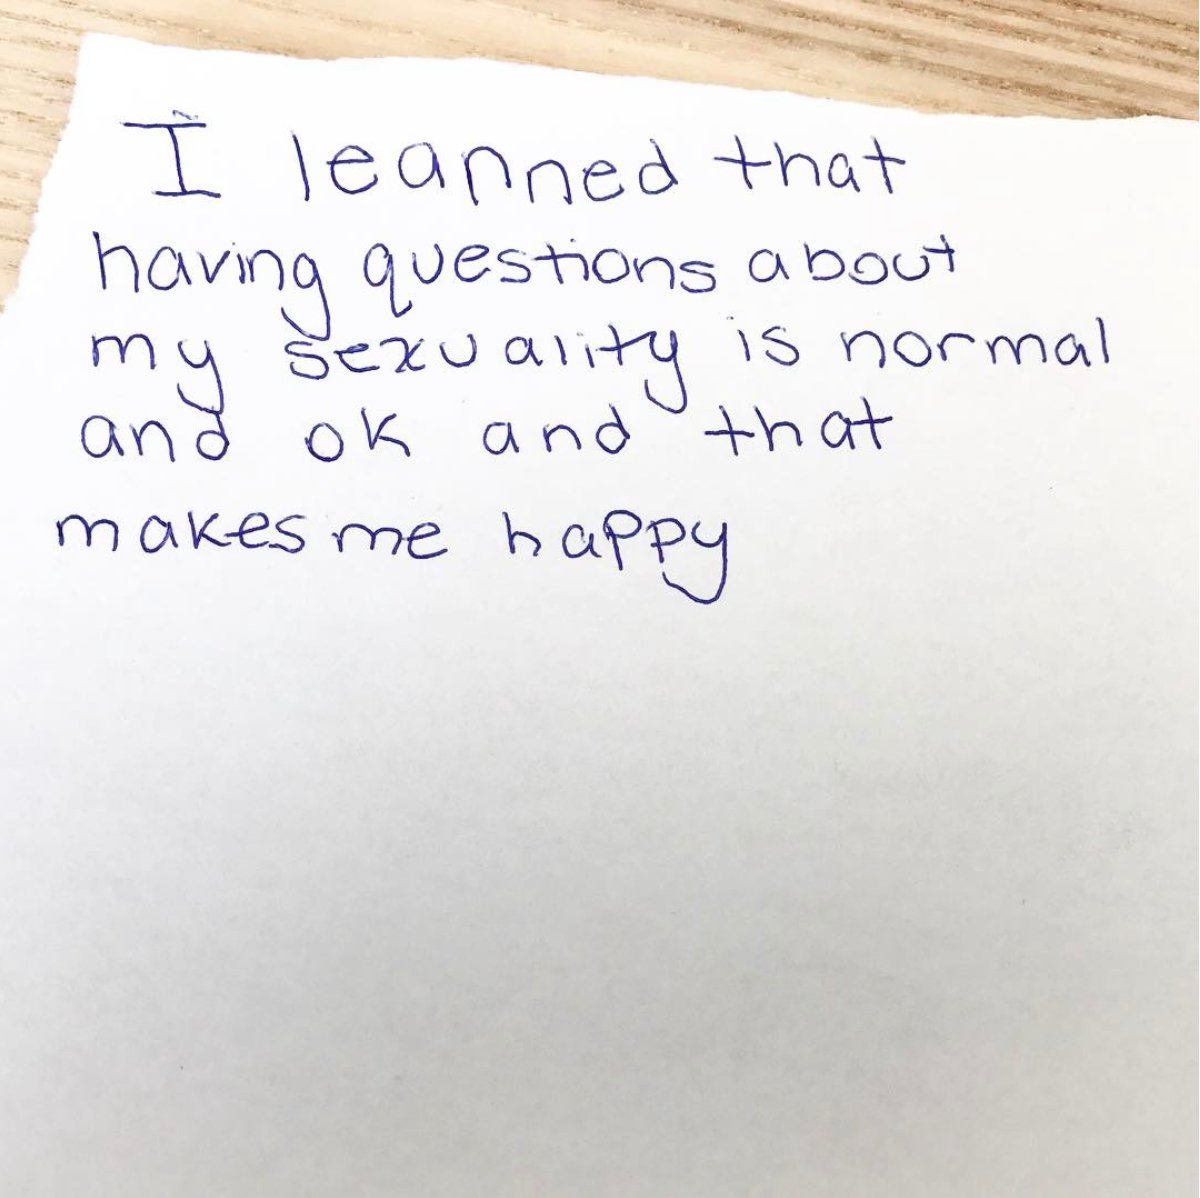 I leanned that
having questions about
my sexuality is normal
and ok and that
makes me happy